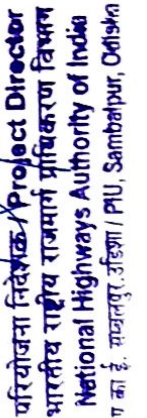 परियोजना निदेशक / Project Director
भारतीय राष्ट्रीय राजमार्ग प्राधिकरण विभाग
National Highways Authority of India
प का ई. सम्बलपुर उड़िशा / PIU, Sambalpur, Odisha